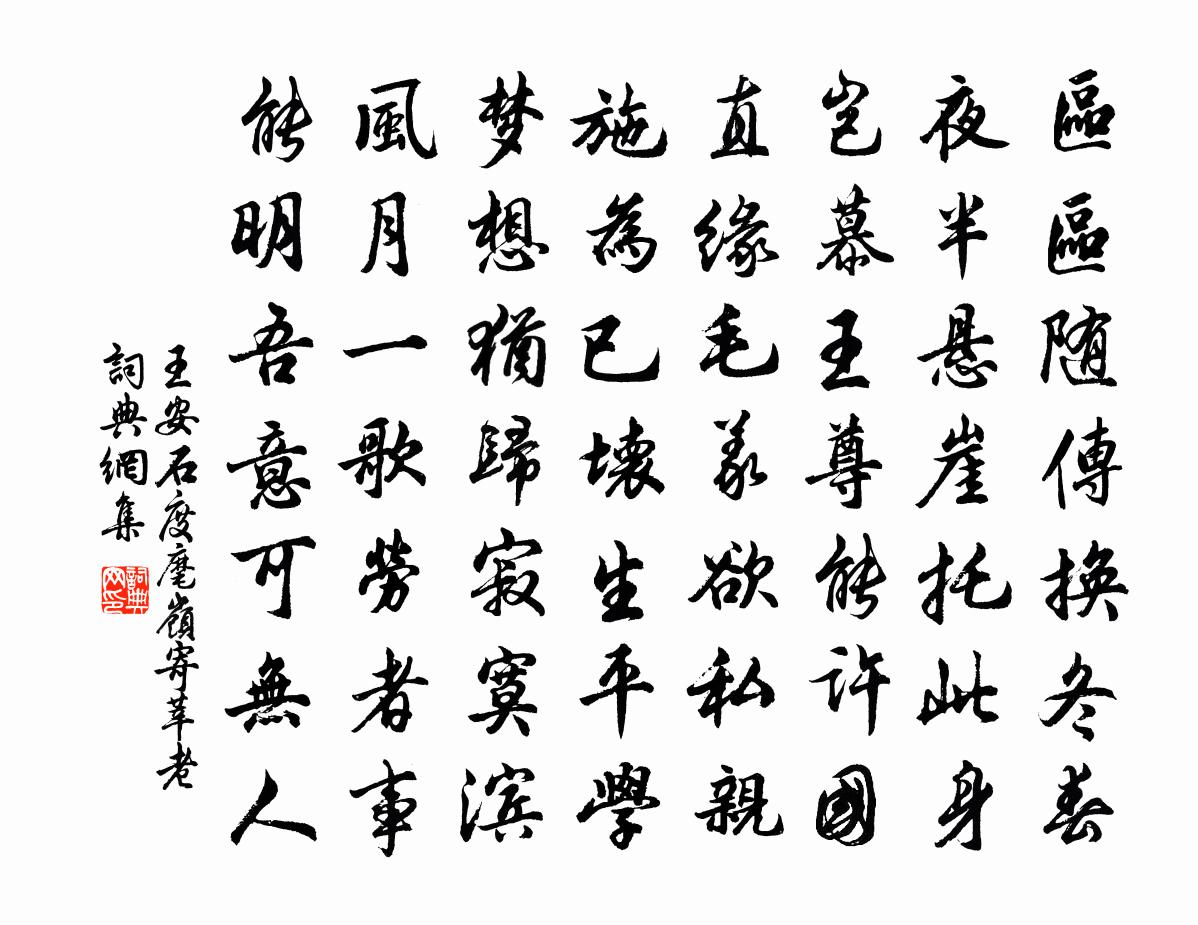 區區随傳換冬春
夜半悬崖托此身
岂慕王尊能许國
直缘毛义欲私親
施為已壞生平學
梦想猶歸寂寞滨
風月一歌勞者事
能明吾意可無人
王安石度麾嶺寄莘老
詞典網集
詞典网印